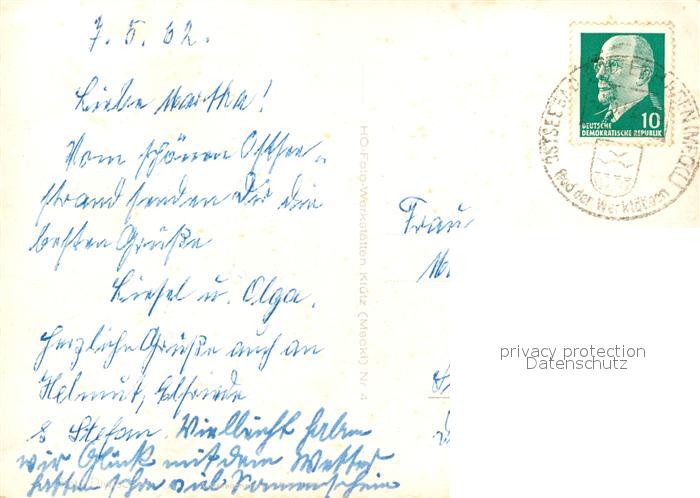 7. 5. 62.
Liebe Martha!
Vom schönen Ostsee-
strand senden Dir die
besten Grüße
Liesel u. Olga.
Herzliche Grüße auch an
Helmut, Elfriede
& Stefan. Vielleicht haben
wir Glück mit dem Wetter
hatten schon viel Sonnenschein
HC-Foto-Werkstätten Klütz (Meckl) Nr. 4
10
DEUTSCHE
DEMOKRATISCHE REPUBLIK
OSTSEEBAD
Bad der Werktätigen
Frau
privacy protection
Datenschutz